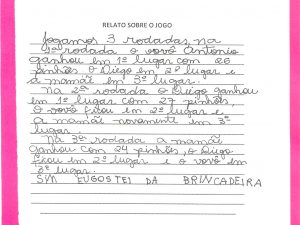 RELATO SOBRE O JOGO
Jogamos 3 rodadas, na
1ª rodada o vovô Antonio
ganhou em 1º lugar com 26
pinhões o Diego em 2º lugar e
a mamãe em 3º lugar.
Na 2ª rodada o Diego ganhou
em 1º lugar com 27 pinhões,
o vovô ficou em 2º lugar e
a mamãe novamente em 3º
lugar.
Na 3ª rodada a mamãe
ganhou com 24 pinhões, o Diego
ficou em 2º lugar e o vovô em
3º lugar.
SIM EUGOSTEI DA BRINCADEIRA